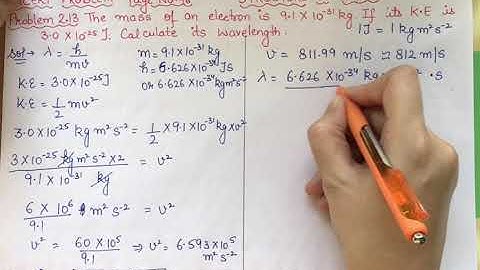 Problem 2.13 The mass of an electron is 9.1 X 10⁻³¹ kg If its K.E is
3.0 X 10⁻²⁵ J. Calculate its wavelength.
1J = 1 kg m² s⁻²
Solⁿ → λ = h/mv
m = 9.1 X 10⁻³¹ kg
h = 6.626 X 10⁻³⁴ JS
or 6.626 X 10⁻³⁴ kg m² s⁻¹
K.E = 3.0 X 10⁻²⁵ J
K.E = 1/2 mv²
3.0 X 10⁻²⁵ = 1/2 X 9.1 X 10⁻³¹ kg X v²
3 X 10⁻²⁵ kg m² s⁻² X 2 / 9.1 X 10⁻³¹ kg = v²
6 X 10⁶ / 9.1 m² s⁻² = v²
v² = 60 X 10⁵ / 9.1 ⇒ v² = 6.593 X 10⁵
m² s⁻²
v = 811.99 m/s ≈ 812 m/s
λ = 6.626 X 10⁻³⁴ kg · s